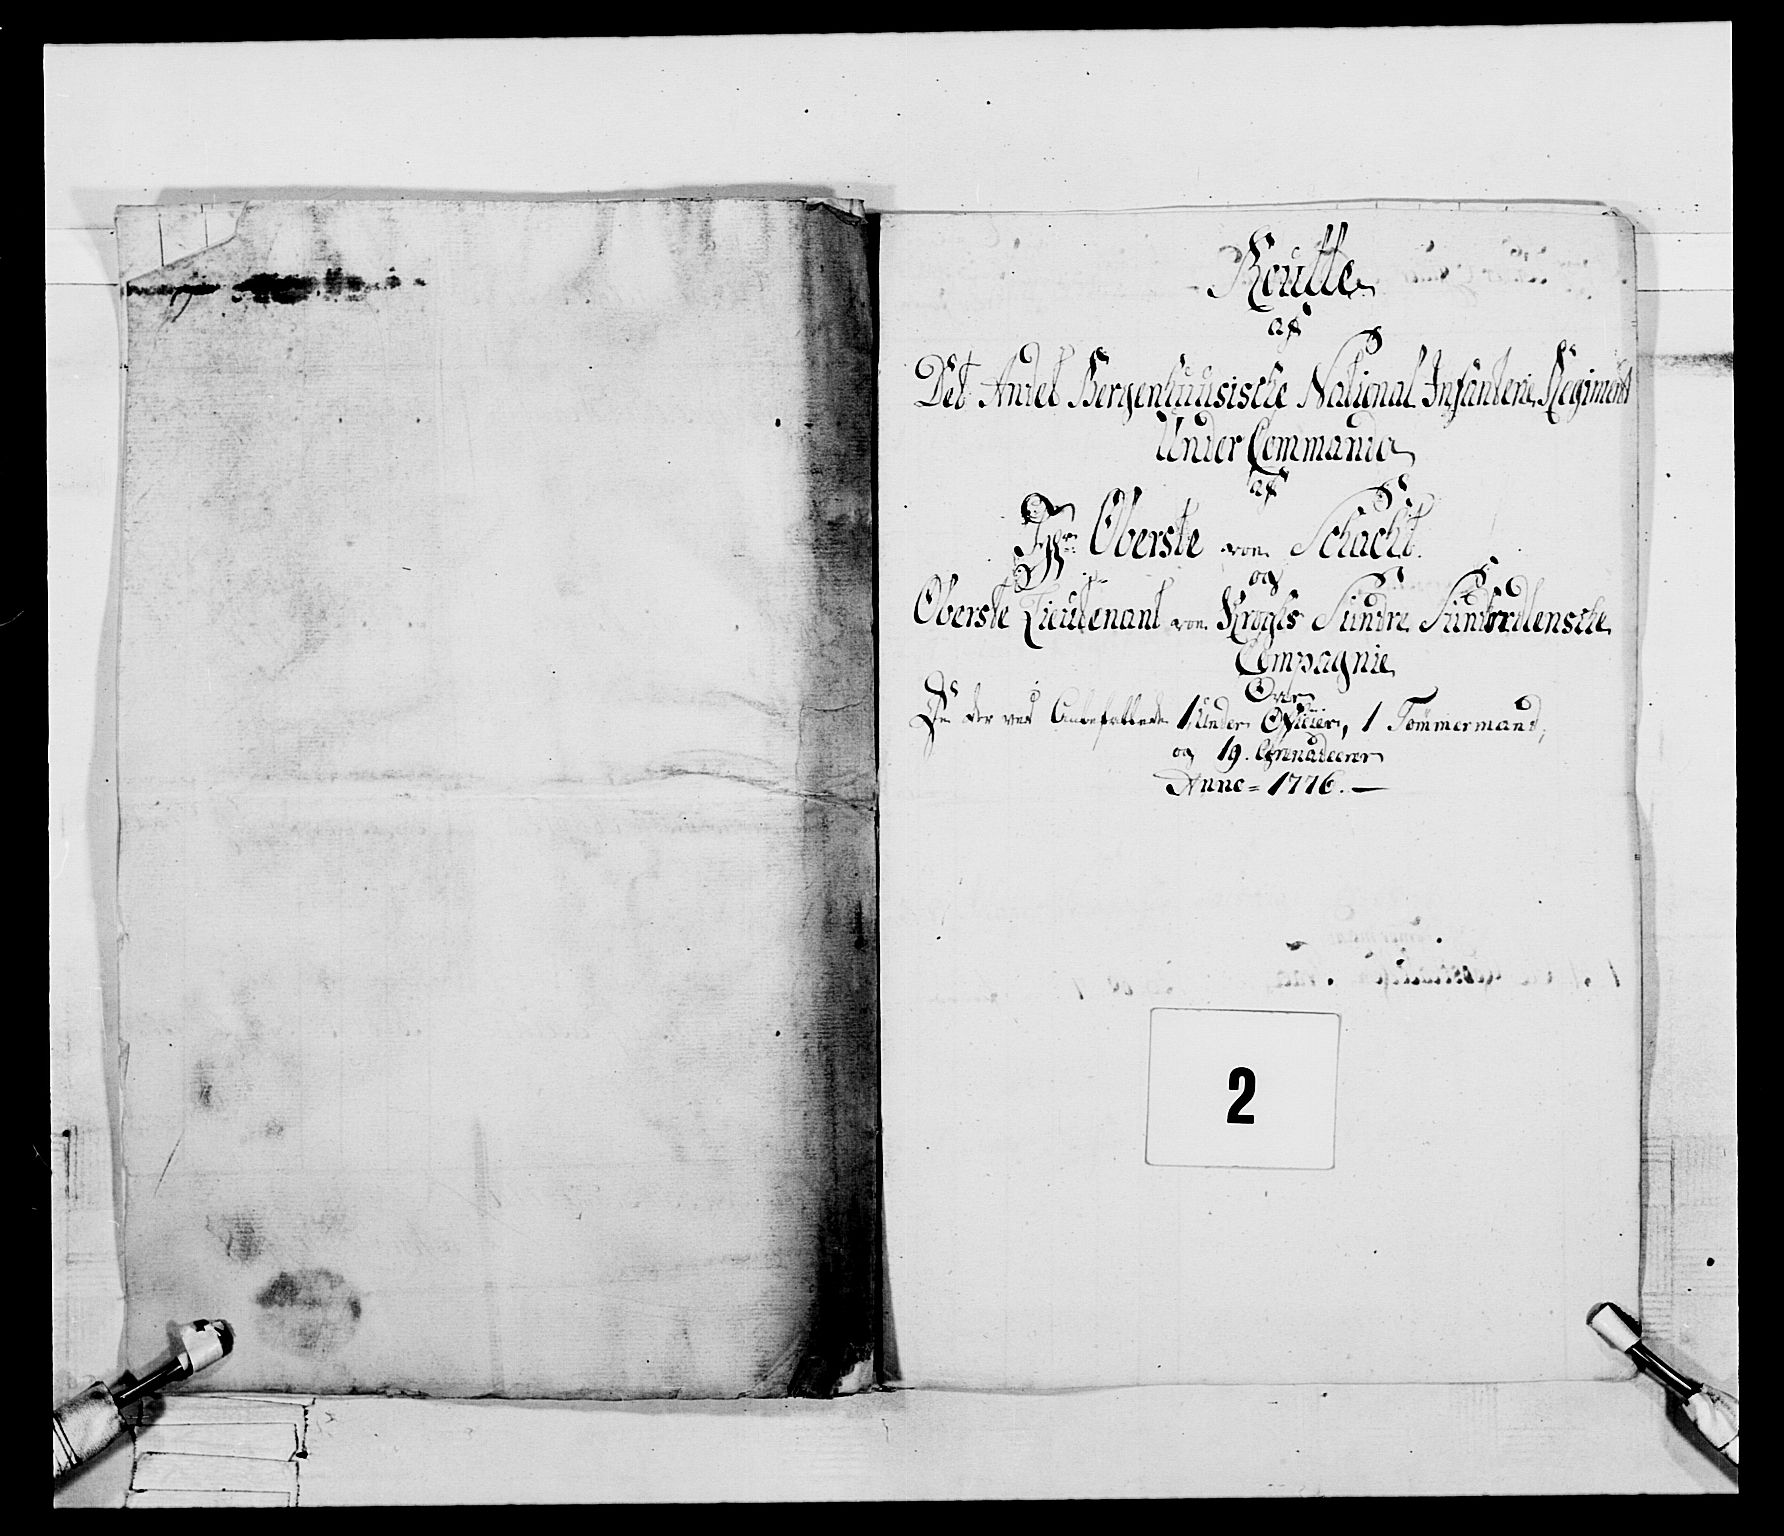 Roulle
af
Det Andet Bergenhuusische National Infanterie Regiment
Under Commando
af
Hr: Oberste von Schacht.
og
Oberste Lieutenant von Kroghs Søndre Sundhordlenske
Compagnie
Over
De der ved Anbefallede 1 Under Officier, 1 Tømmermand,
og 19. Grenadeerer
Anno = 1776. —
2